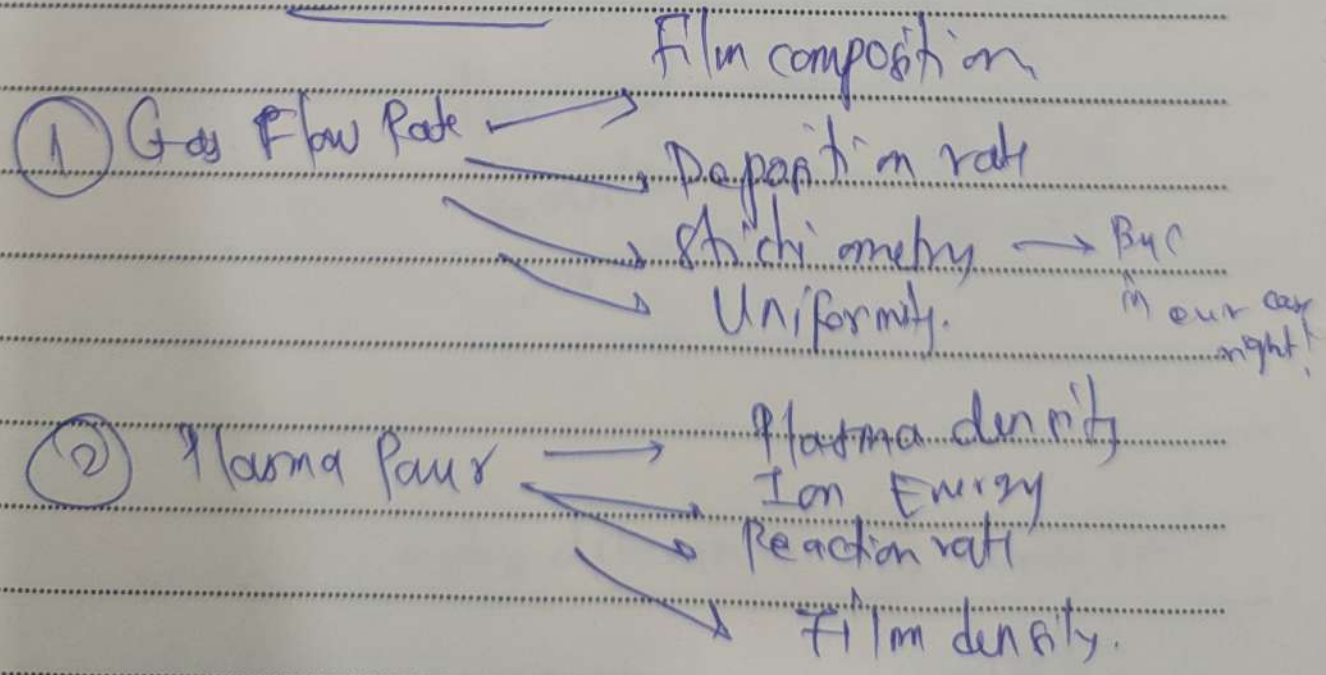 Film composition
① Gas Flow Rate
Deposition rate
Stichiometry → B4C
in our case
right!
Uniformity.
② Plasma Power → Plasma density
Ion Energy
Reaction rate
Film density.